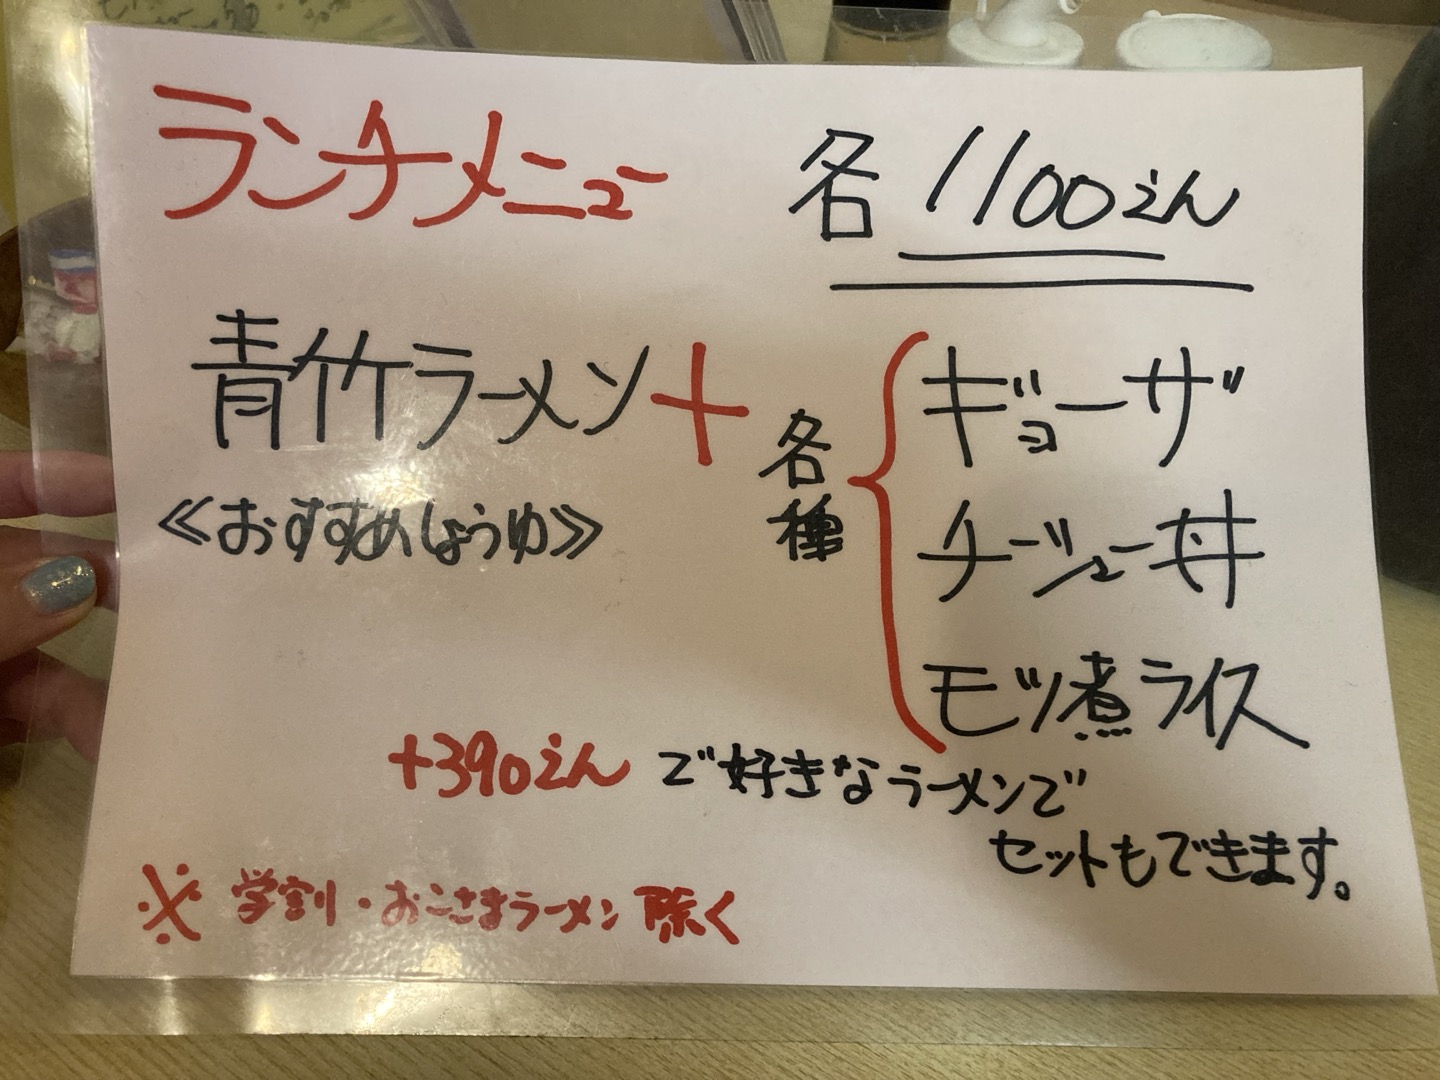 ランチメニュー 各1100えん
青竹ラーメン+各種
ギョーザ
チャーシュー丼
モツ煮ライス
≪おすすめしょうゆ≫
+390えんで好きなラーメンで
セットもできます。
※学割・おこさまラーメン除く